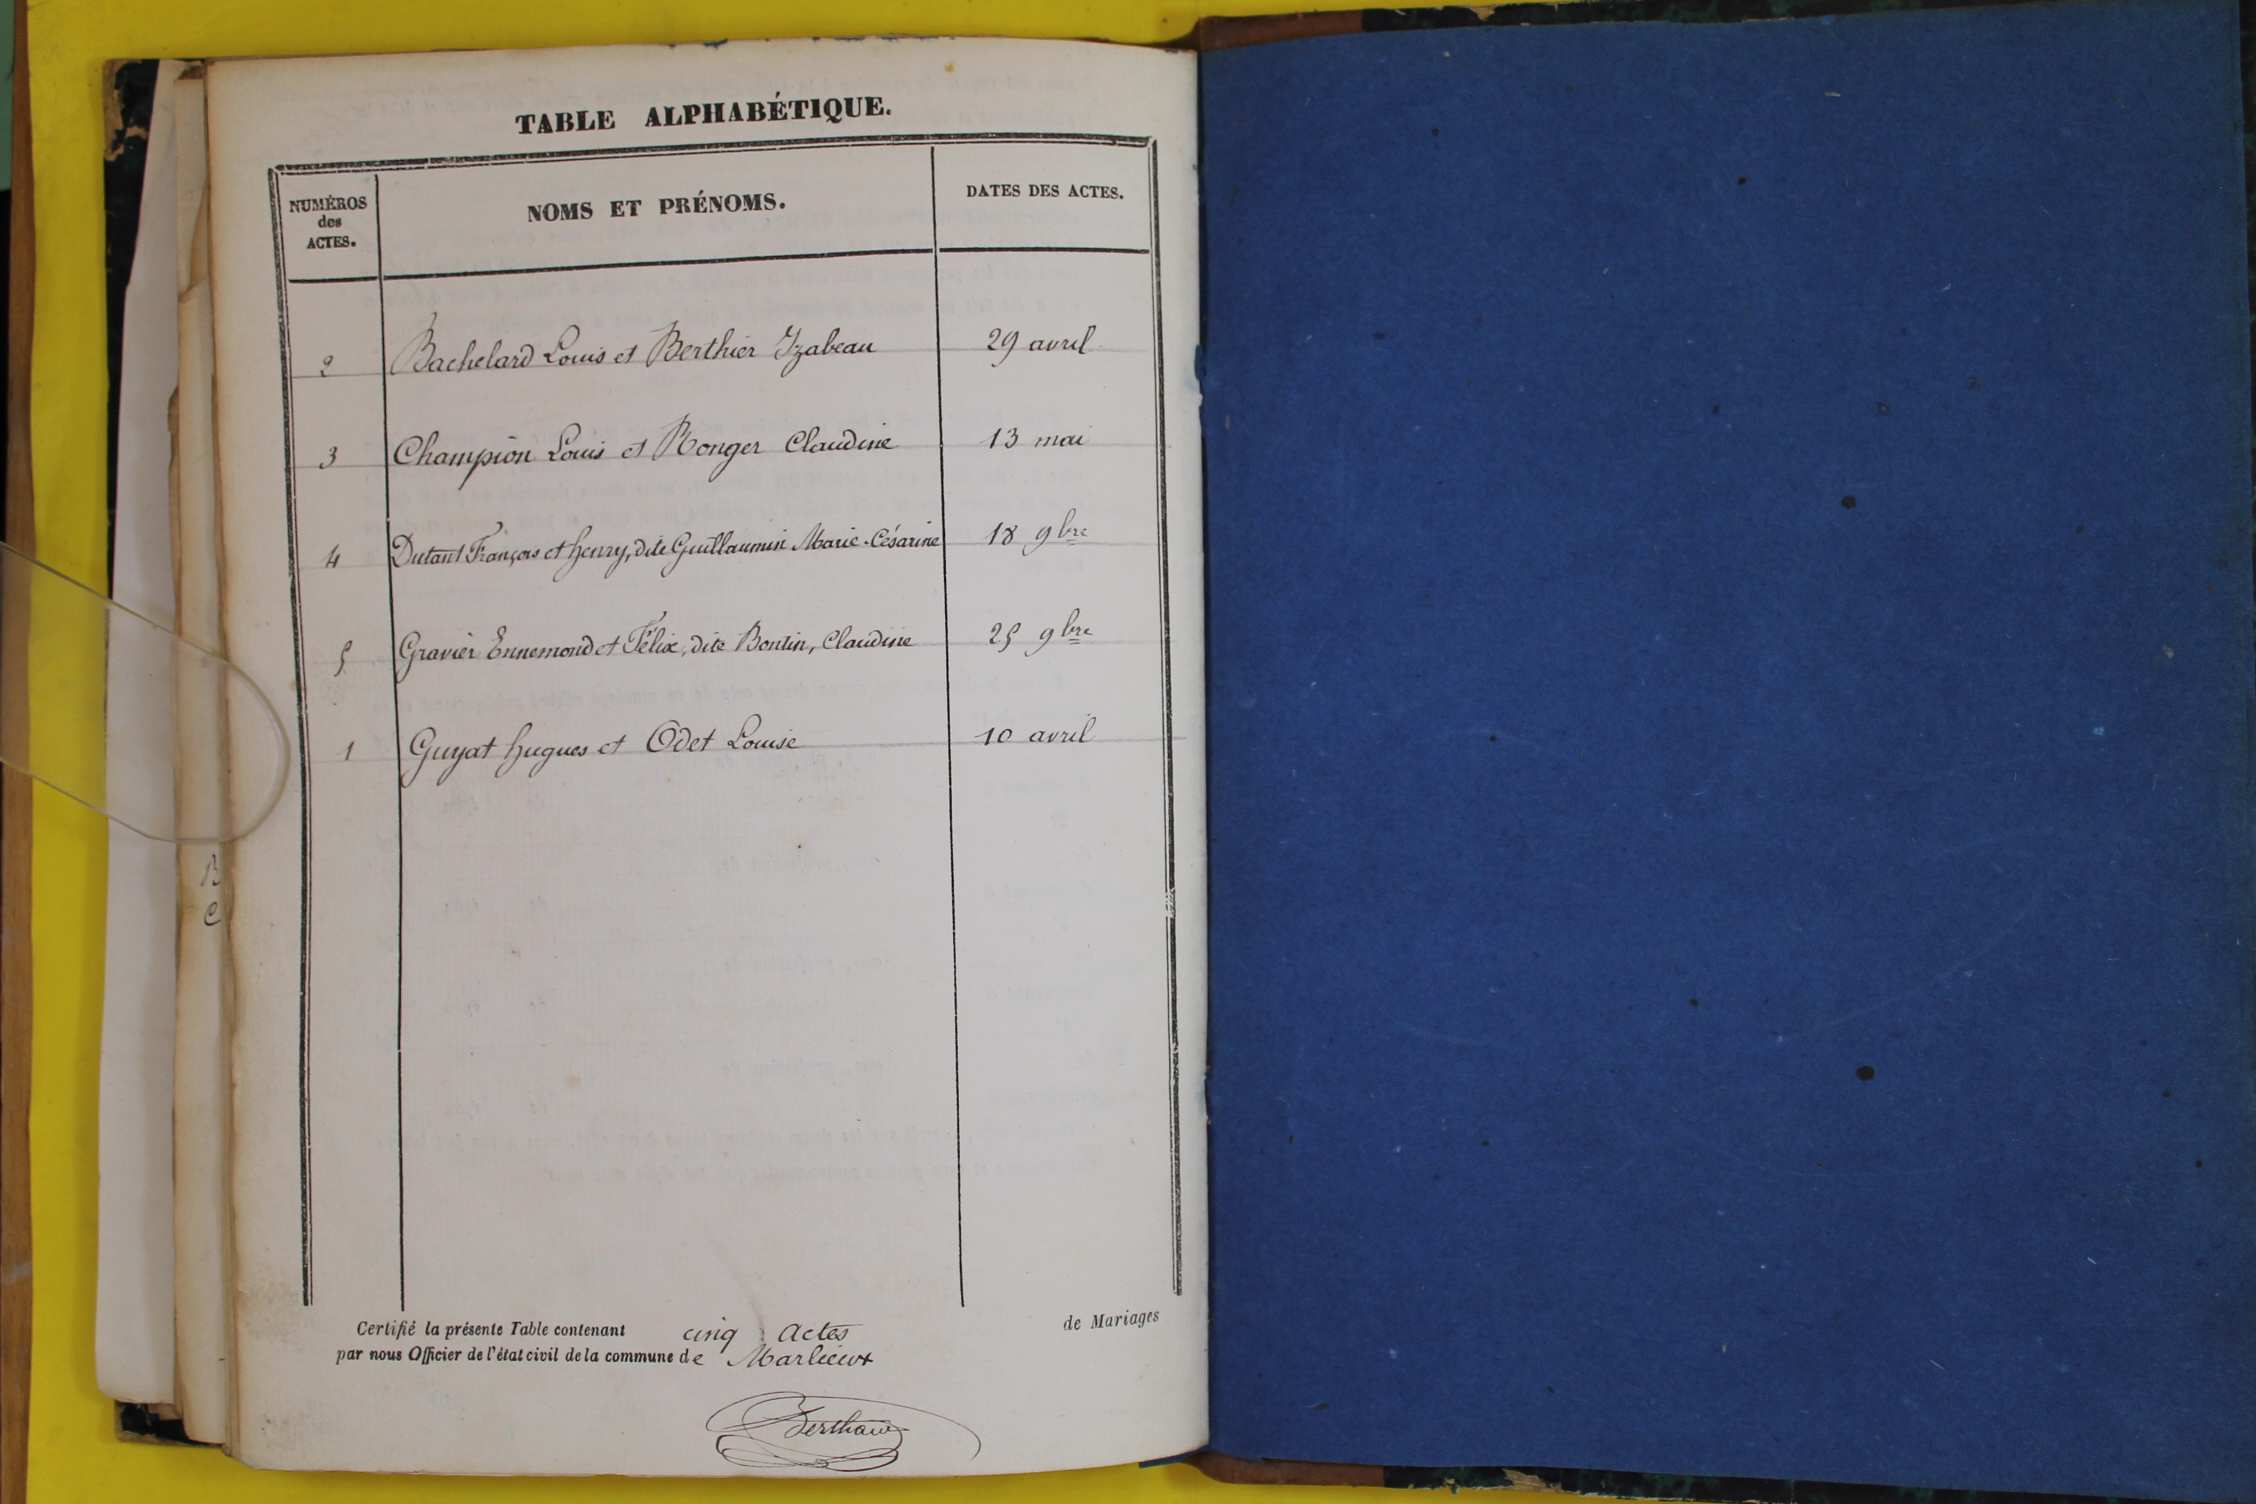 TABLE ALPHABÉTIQUE.
NUMÉROS
des
ACTES.
NOMS ET PRÉNOMS.
DATES DES ACTES.
2 Bachelard Louis et Berthier Izabeau 29 avril
3 Champion Louis et Ronger Claudine 13 mai
4 Dutant François et henry, dite Guillaumin Marie-Césarine 18 9bre
5 Gravier Ennemond et Félix, dite Bontin, Claudine 25 9bre
1 Guyat hugues et Odet Louise 10 avril
B
C
Certifié la présente Table contenant cinq actes de Mariages
par nous Officier de l'état civil de la commune de Marlieux